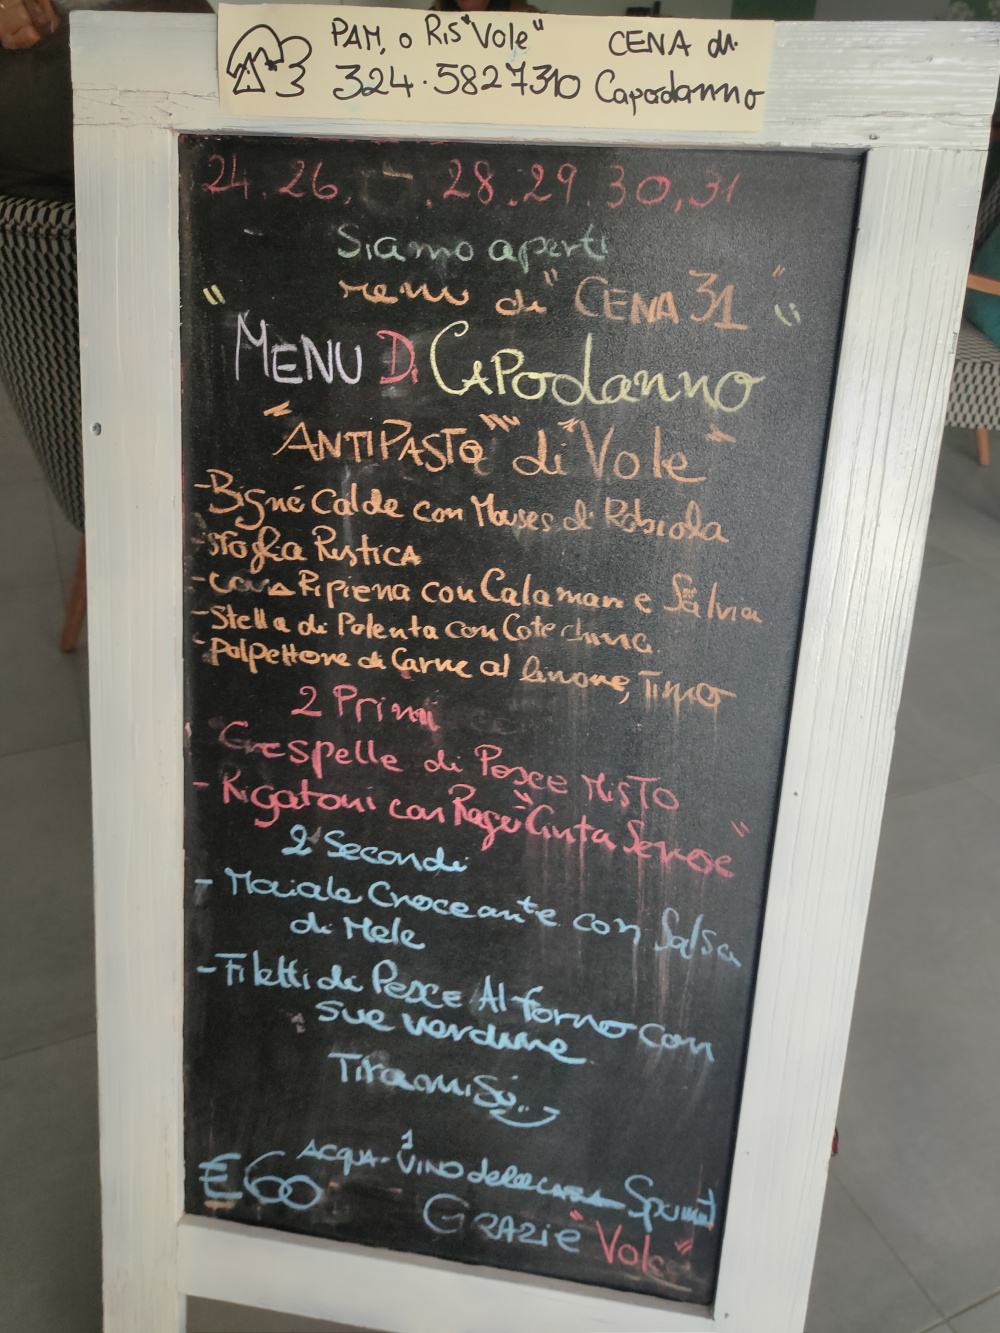 PAM, o Ris "Vole" CENA di
324.5827310 Capodanno
24.26, - .28.29.30,31
Siamo aperti
menu di "CENA 31"
"MENU Di CAPodanno"
"ANTIPASTO" di "Vole"
-Bigné Calde con Mouses di Robiola
sfoglia Rustica
- Ripiena con Calamari e Salvia
-Stella di Polenta con Cotechino.
-Polpettone di Carne al limone, Timo
2 Primi
Crespelle di Pesce MISTO
-Rigatoni con Ragù "Cinta Senese"
2 Secondi
-Maiale Croccante con Salsa
di Mele
-Filetti di Pesce Al forno con
sue verdure
TiramiSù..
ACQUA-1 VINO della CASA Spumat
€60
GRAZIE "Vole"